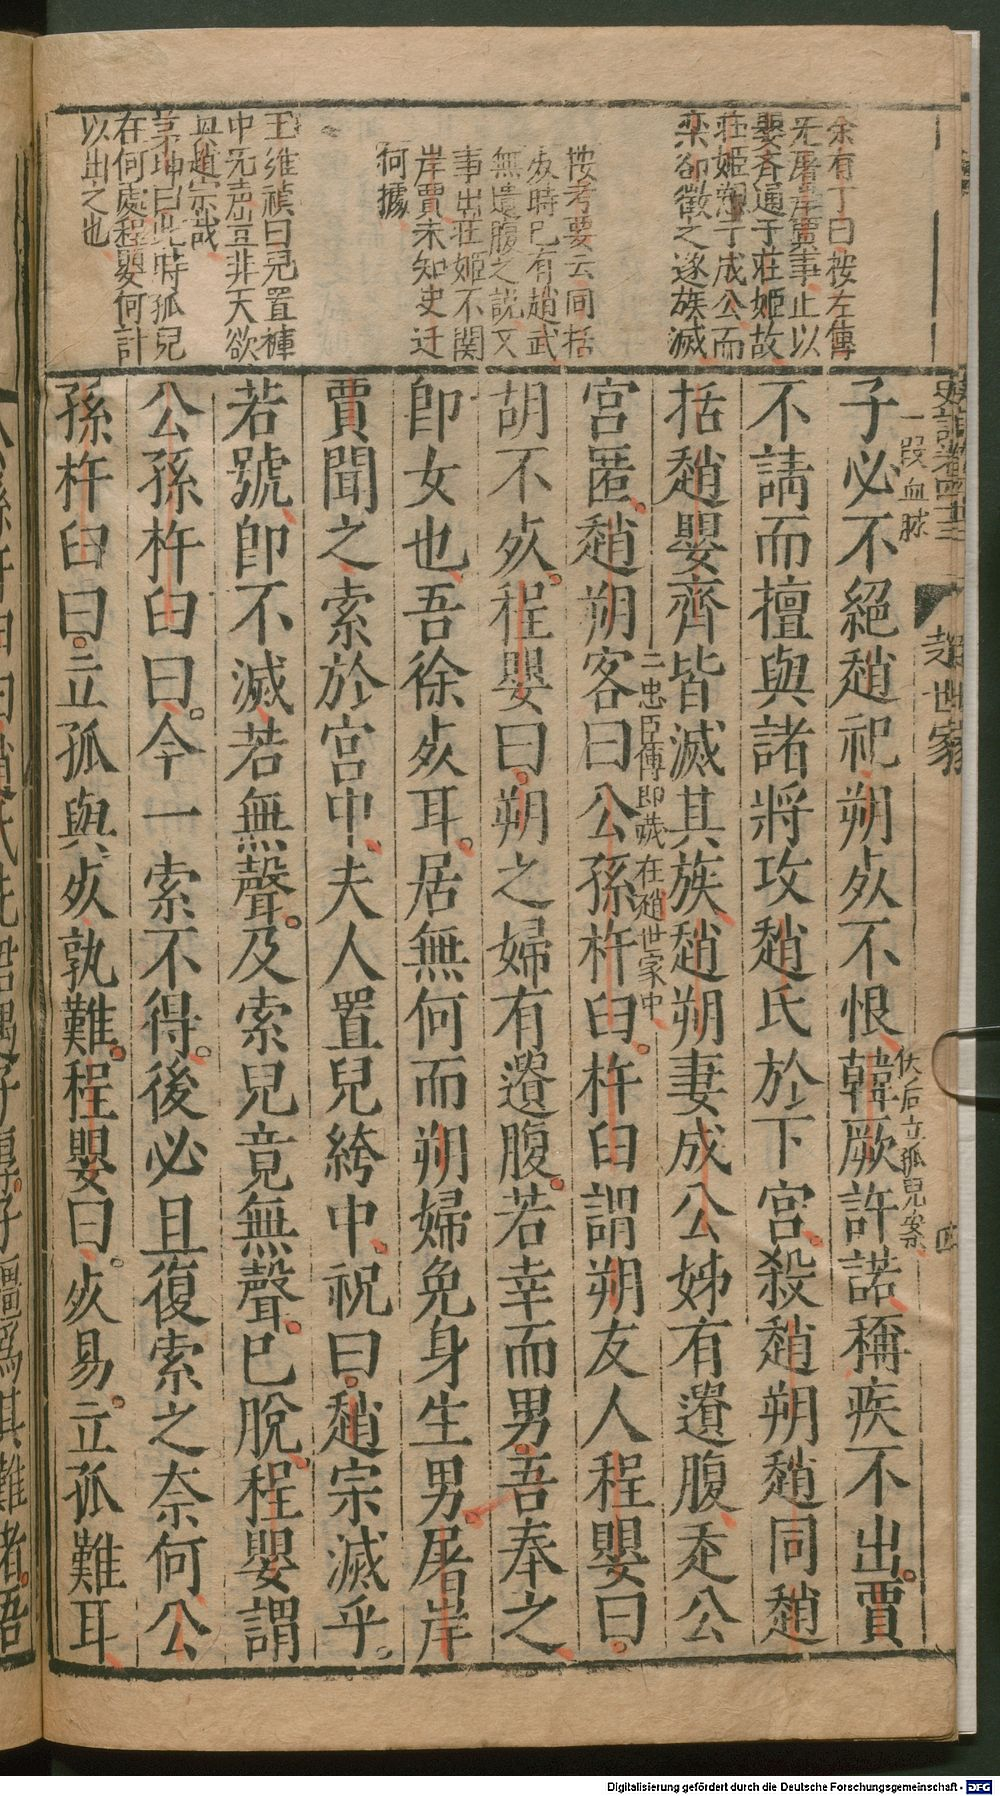 余有丁曰按左傳
无屠岸賈事止以
嬰齊通于莊姬故
莊姬愬于成公而
欒郤徵之遂族滅
按考要云同括
㱙時已有趙武
無遺腹之說又
事出莊姬不関
岸賈未知史迁
何據
王維禎曰兒置褲
中无声豈非天欲
興趙宗哉
茅坤曰此時孤兒
在何處程嬰何計
以出之也
一段血脉
趙世家
伏后立孤兒案
四
子必不絕趙祀朔㱙不恨韓厥許諾稱疾不出賈
不請而擅與諸將攻趙氏於下宮殺趙朔趙同趙
括趙嬰齊皆滅其族趙朔妻成公姊有遺腹走公
二忠臣傳即藏在趙世家中
宮匿趙朔客曰公孫杵臼杵臼謂朔友人程嬰曰
胡不㱙程嬰曰朔之婦有遺腹若幸而男吾奉之
卽女也吾徐㱙耳居無何而朔婦免身生男屠岸
賈聞之索於宮中夫人置兒絝中祝曰趙宗滅乎
若號卽不滅若無聲及索兒竟無聲已脫程嬰謂
公孫杵臼曰今一索不得後必且復索之奈何公
孫杵臼曰立孤與㱙孰難程嬰曰㱙易立孤難耳
Digitalisierung gefördert durch die Deutsche Forschungsgemeinschaft - DFG